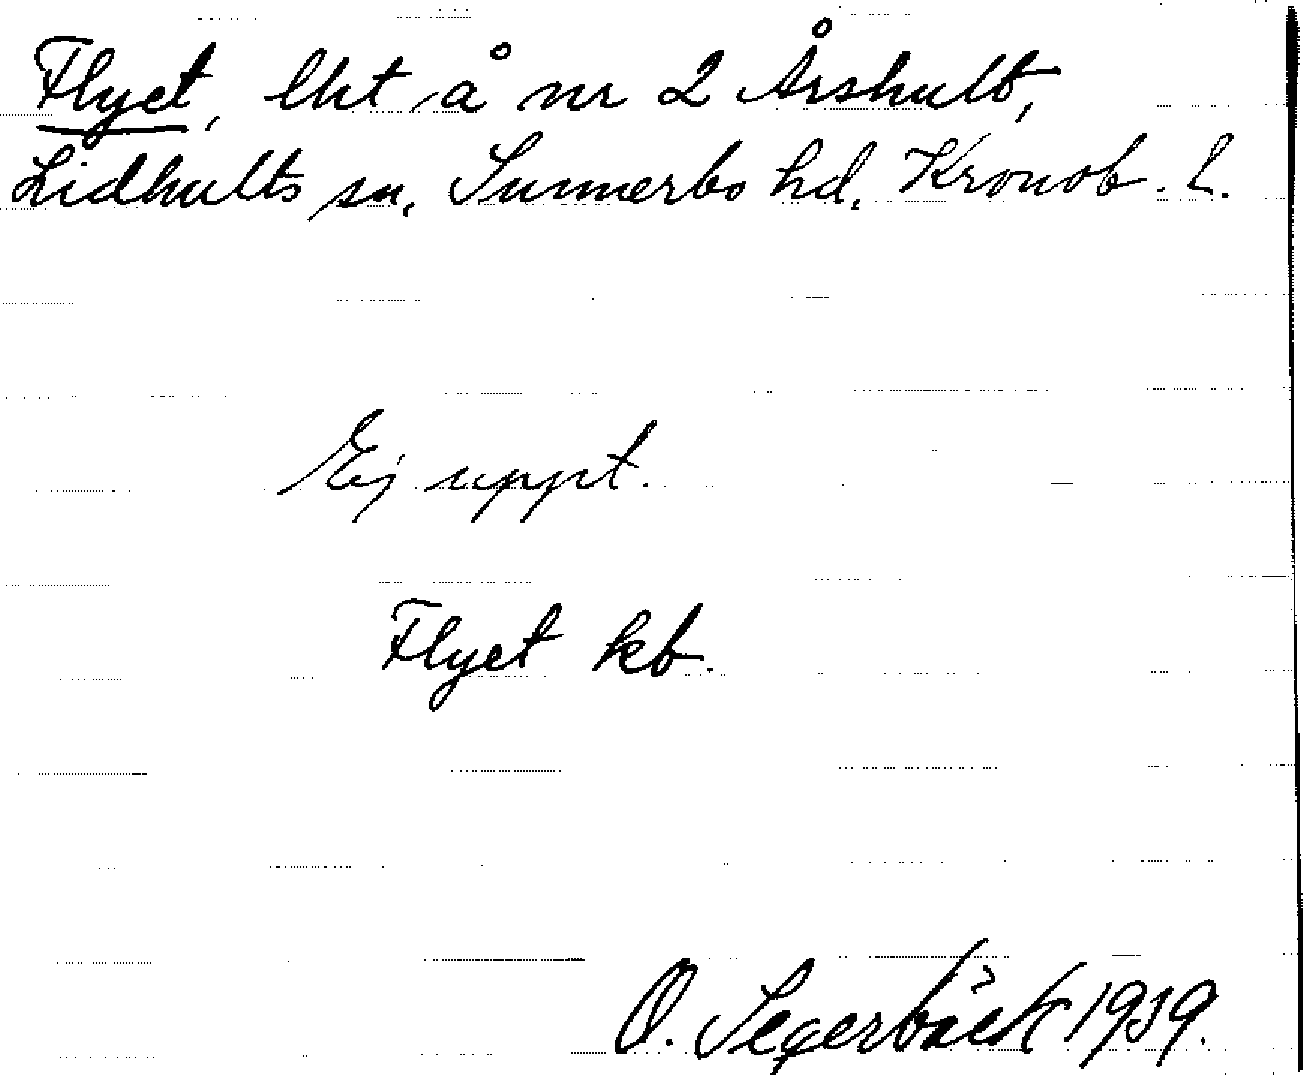 Flyet, lht å nr 2 Årshult,
Lidhults sn, Sunnerbo hd, Kronob. l.
Ej uppt.
Flyet kb.
O. Segerbäck 1939.